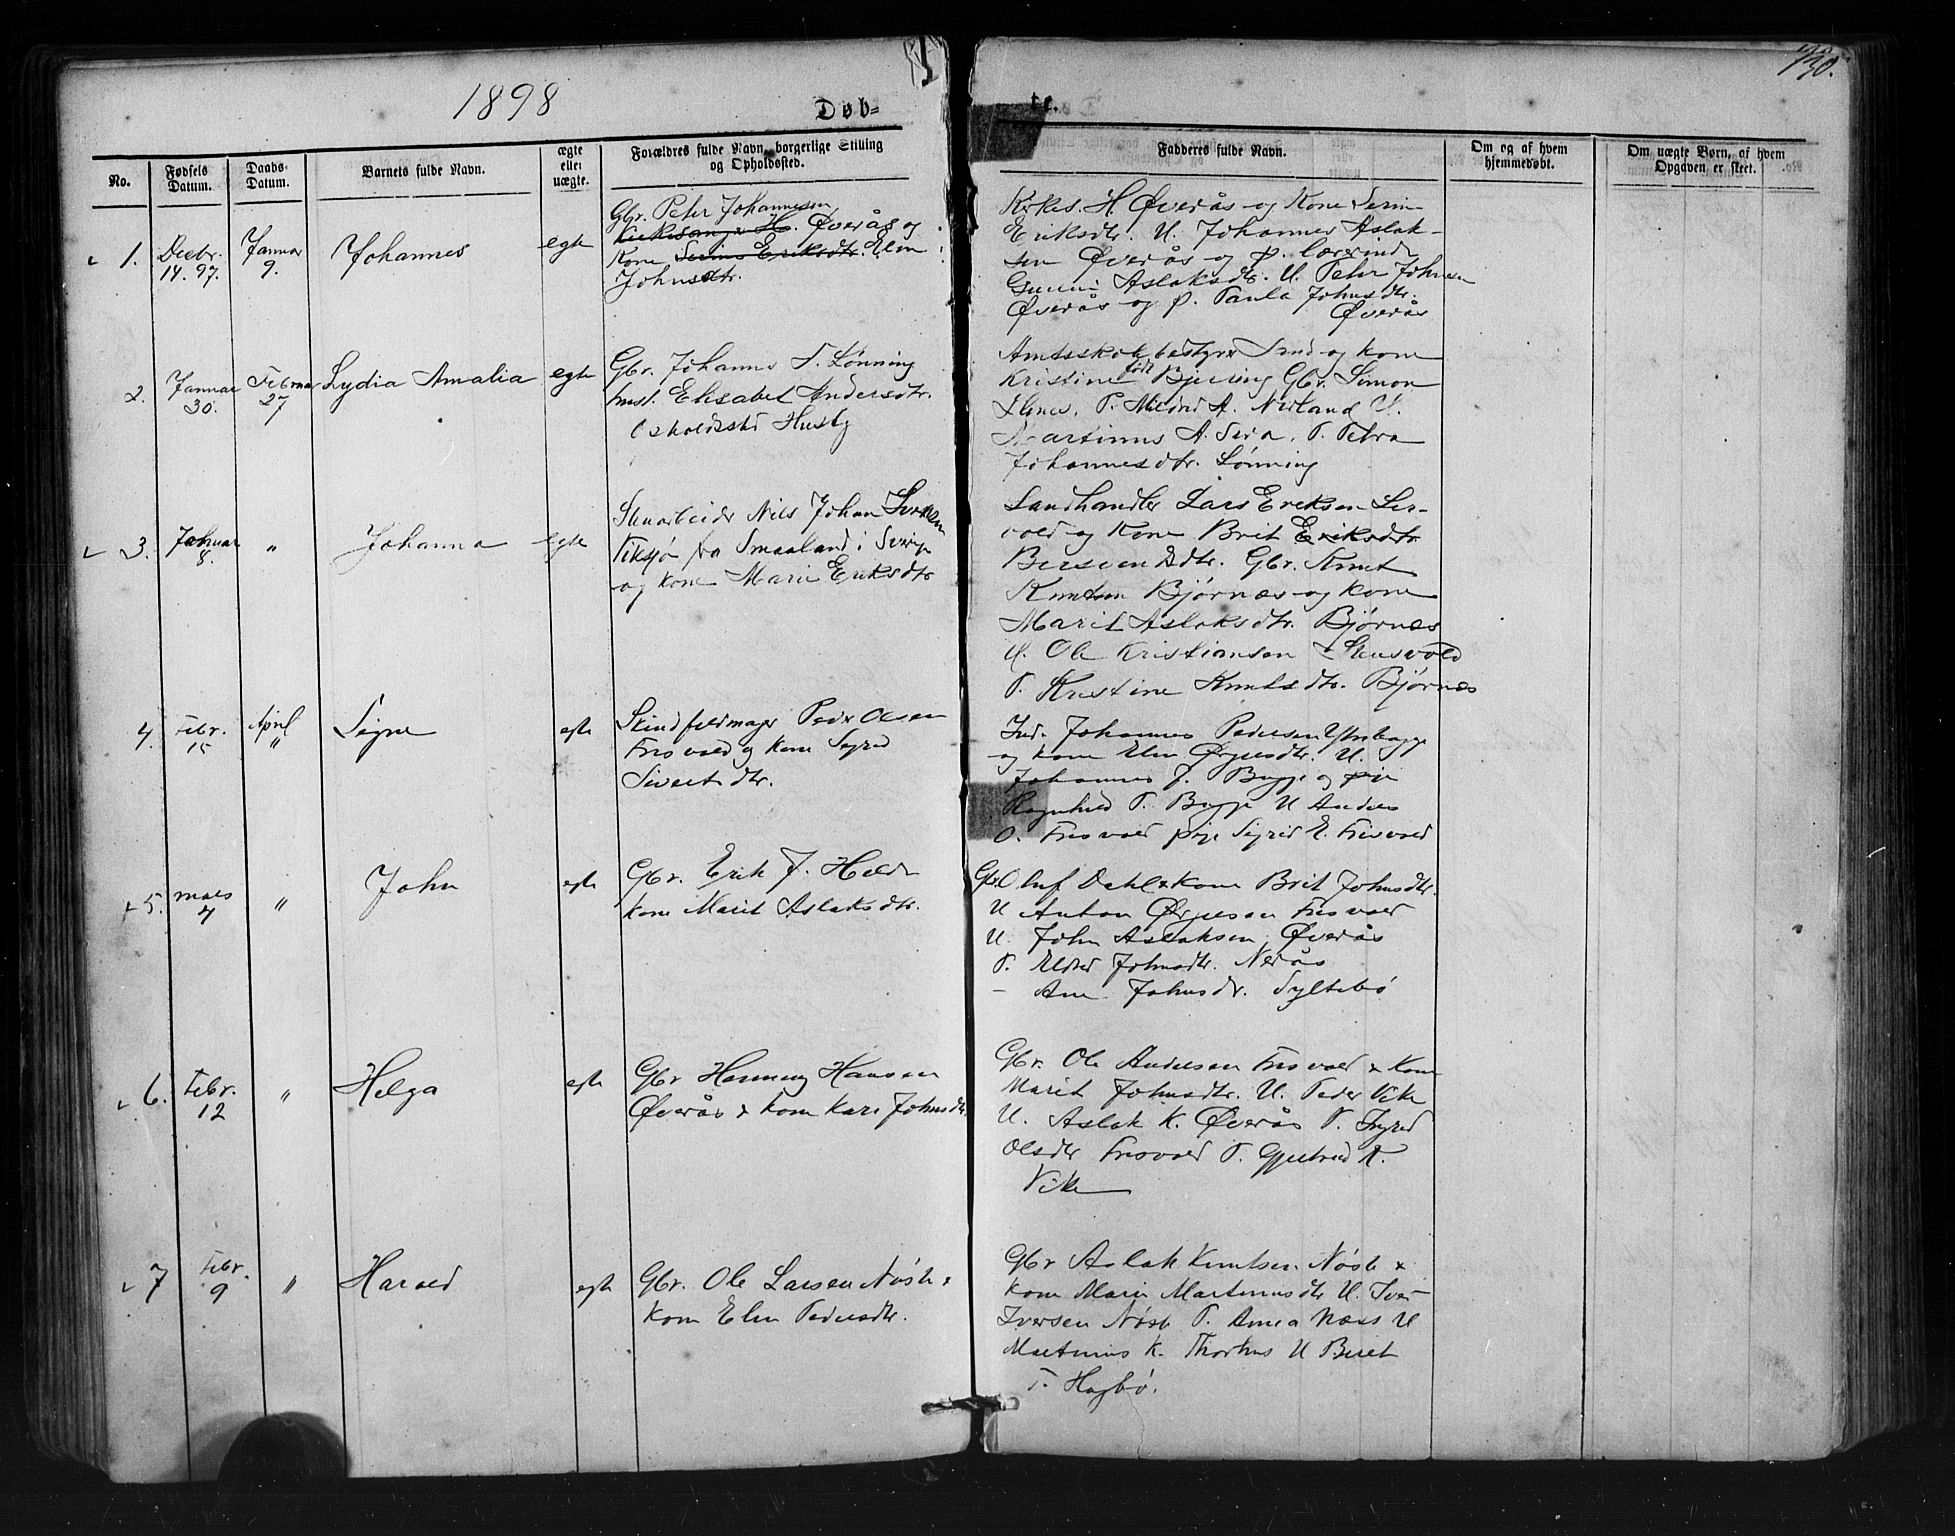 1898
Døb=
te.
130.
No.
Fødsels Datum.
Daabs-Datum.
Barnets fulde Navn.
ægte eller uægte.
Forældres fulde Navn, borgerlige Stilling og Opholdssted.
Fadderes fulde Navn.
Om og af hvem hjemmedøbt.
Om uægte Børn, af hvem Opgaven er skeet.
1.
Decbr. 14. 97.
Januar 9.
Johannes
egte
Gbr. Peter Johannesen
Kirkesanger H. Øverås og
Kone Serine Eriksdtr. Elen
Johnsdtr.
Kirkes. H. Øverås og Kone Serine
Eriksdtr. U. Johannes Aslak-
sen Øverås og p. lærerinde
Gunni Aslaksdtr. U. Peter Johnsen
Øverås og P. Paula Johnsdtr.
Øverås
2.
Januar 30.
Februar 27
Lydia Amalia
egte
Gbr. Johannes T. Lønning
hust. Elisabet Andersdtr.
Opholdssted Husby
Amtsskolebestyrer Sand og kone
Kristine født Bjering Gbr. Simon
P. A. Nerland U.
Martinus A. P. Petra
Johannesdtr. Lønning
3.
Januar 8.
"
Johanna
egte
Stenarbeider Nils Johan
Viksjø fra Smaaland i Sverige
og kone Marie Eriksdtr.
Landhandler Lars Eriksen
vold og Kone Brit Eriksdtr.
Bersvendsdtr. Gbr. Knut
Knutsen Bjørnæs og kone
Marit Aslaksdtr. Bjørnæs
U. Ole Kristiansen Stensvold
P. Kristine Knutsdtr. Bjørnæs
4.
Febr. 15
April "
Signe
egte
Skindfeldmager Peder Olsen
Frisvold og kone Sigrid
Sivertsdtr.
Ind. Johannes Pedersen
og kone Elen Ørjesdtr. U.
Johannes J. Bugge og pige
Ragnhild T. Bugge U Anders
O. Frisvold pige Sigrid E. Frisvold
5.
mars 4
"
John
egte
Gbr. Erik J. Helde
kone Marit Aslaksdtr.
Gbr. Oluf Dahl & kone Brit Johnsdtr.
U Anton Ørjesen Frisvold
U. John Aslaksen Øverås
P. Eldrid Johnsdtr. Nerås
– Ane Johnsdr. Syltebø
6.
Febr. 12
"
Helga
egte
Gbr Henning Hansen
Øverås & kone Kari Johnsdtr.
Gbr. Ole Andersen Frisvold & Kone
Marit Johnsdtr. U. Peder Vike
U. Aslak K. Øverås P. Ingrid
Olsdtr Frisvold P. Gjertrud K.
Vike
7
Febr. 9
"
Harald
egte
Gbr. Ole Larsen Nøste &
kone Elen Pedersdtr.
Gbr Aslak Knutsen Nøste &
kone Marie Martinusdtr U. Iver
Iversen Nøste P. Anna Næss U
Martinus K. Thorhus U Beret
T. Hagbø.